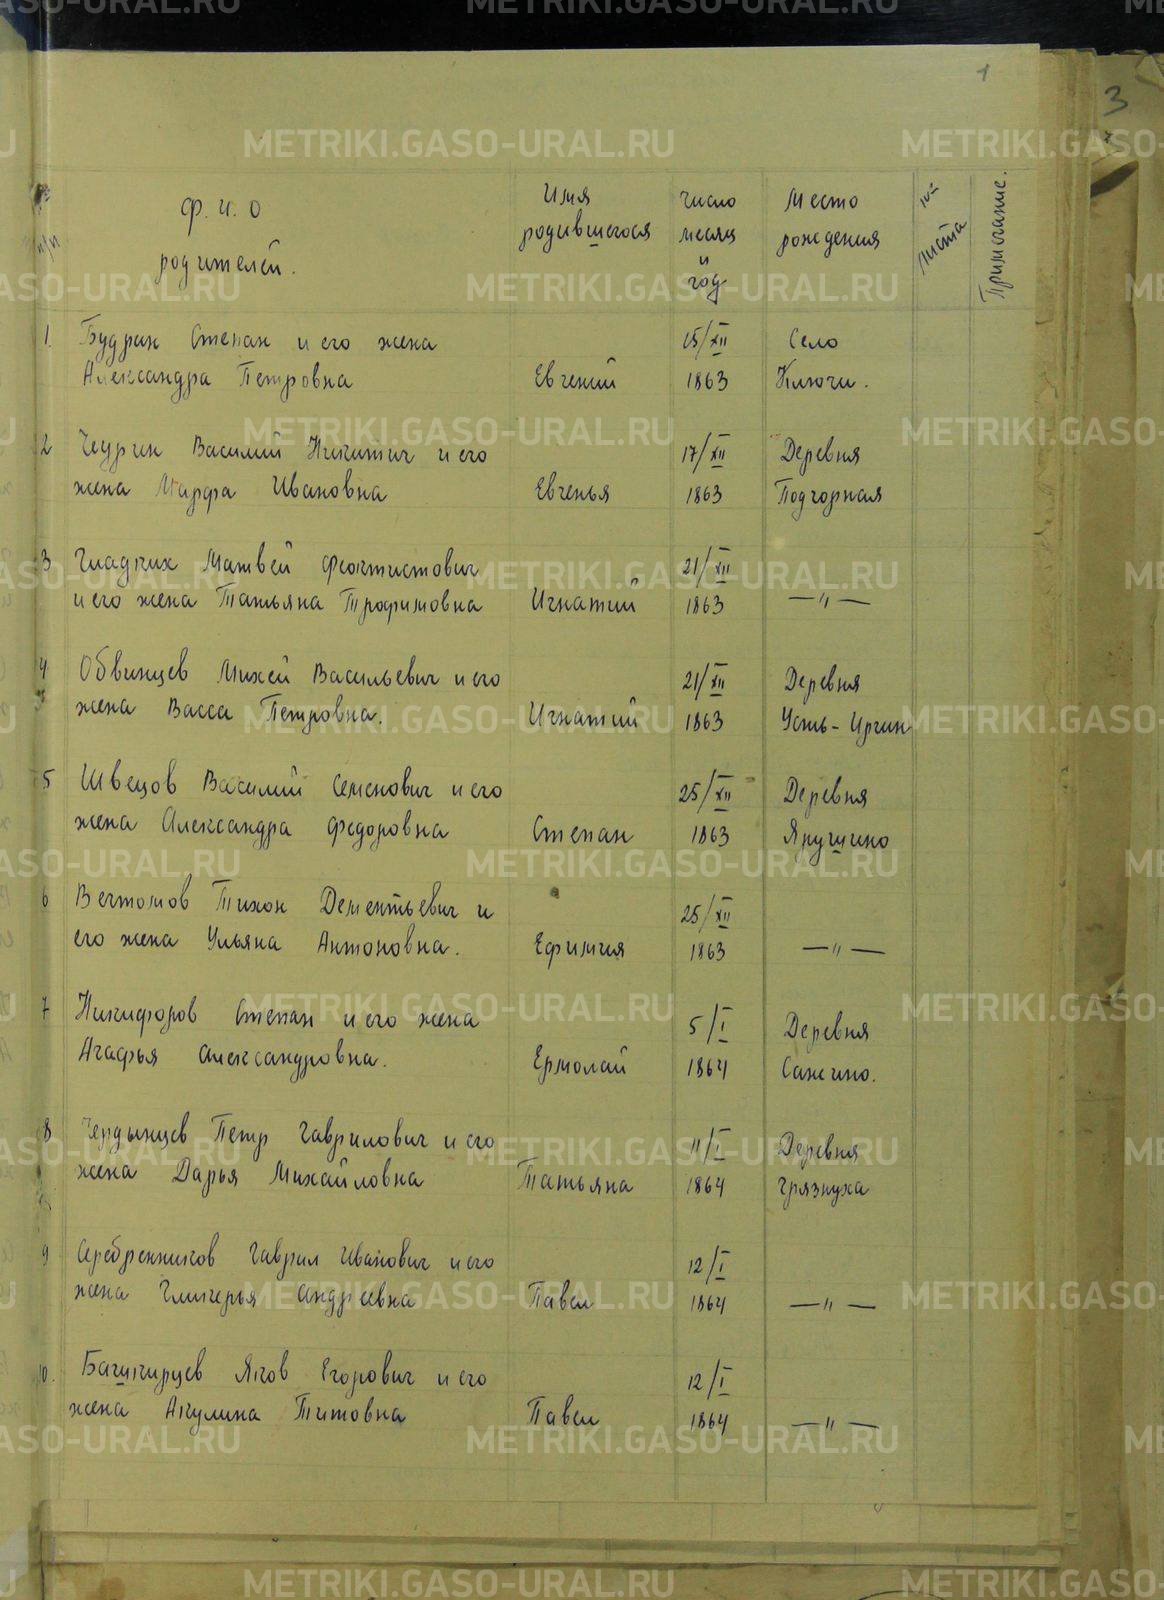 METRIKI.GASO-URAL.RU
1
3
№ п/п
Ф.И.О родителей.
Имя родившегося
число месяц и год
Место рождения
№№ листа
Примечание.
1. Будрин Степан и его жена
Александра Петровна
Евгений
15/XII
1863
Село
Ключи.
2 Чеурин Василий Никитич и его
жена Марфа Ивановна
Евгенья
17/XII
1863
Деревня
Подгорная
3 Гладких Матвей Феоктистович
и его жена Татьяна Трофимовна
Игнатий
21/XII
1863
—"—
4 Обвинцев Михей Васильевич и его
жена Васса Петровна.
Игнатий
21/XII
1863
Деревня
Усть-Иргин
5 Швецов Василий Семенович и его
жена Александра Федоровна
Степан
25/XII
1863
Деревня
Ярушино
6 Вечтомов Тихон Дементьевич и
его жена Ульяна Антоновна.
Ефимия
25/XII
1863
—"—
7 Никифоров Степан и его жена
Агафья Александровна.
Ермолай
5/I
1864
Деревня
Сажино.
8 Чердынцев Петр Гаврилович и его
жена Дарья Михайловна
Татьяна
11/I
1864
Деревня
Грязнуха
9 Серебренников Гаврил Иванович и его
жена Гликерья Андреевна
Павел
12/I
1864
—"—
10. Башкирцев Яков Егорович и его
жена Акулина Титовна
Павел
12/I
1864
—"—